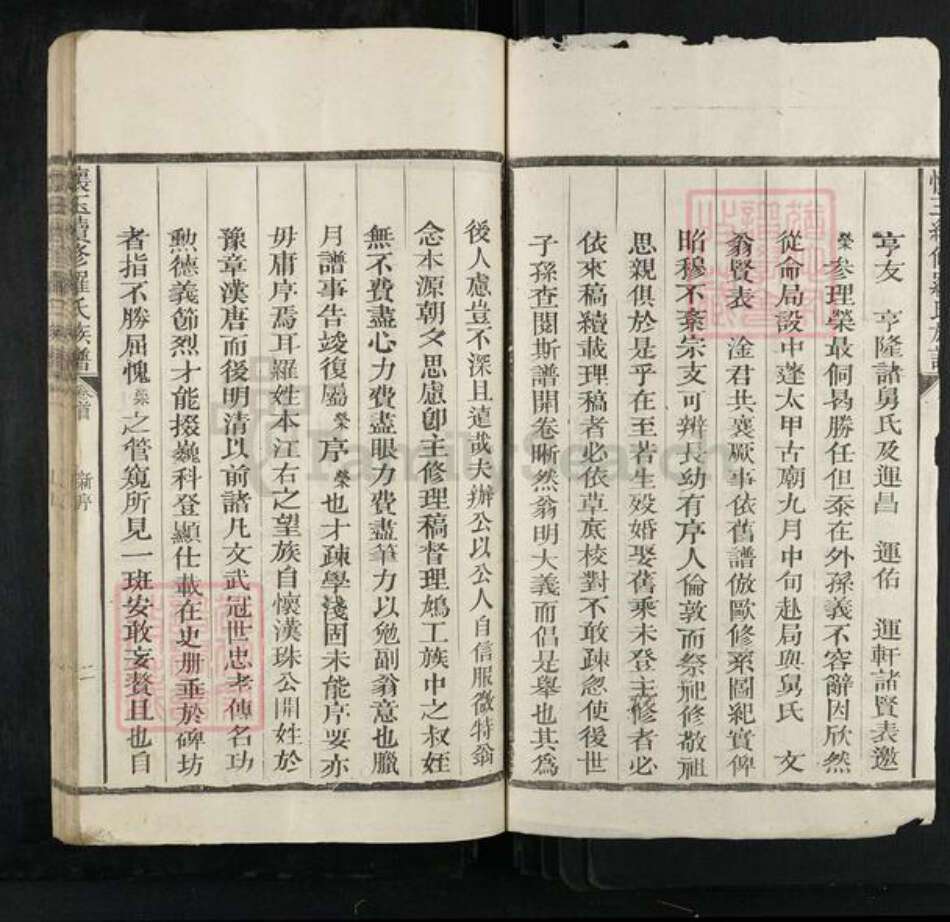 亨友 亨隆諸舅氏及運昌 運佑 運軒諸賢表邀
榮參理榮最侗曷勝任但泰在外孫義不容辭因欣然
從命局設中蓬太甲古廟九月中旬赴局與舅氏 文
翁賢表 淦君共襄厥事依舊譜倣歐修系圖紀實俾
昭穆不紊宗支可辨長幼有序人倫敦而祭祀修敬祖
思親俱於是乎在至若生歿婚娶舊乘未登主修者必
依來稿續載理稿者必依草底校對不敢疎忽使後世
子孫查閱斯譜開卷晰然翁明大義而倡是舉也其為
後人慮豈不深且遠哉夫辦公以公人自信服微特翁
念本源朝夕思慮卽主修理稿督理鳩工族中之叔姪
無不費盡心力費盡眼力費盡筆力以勉副翁意也臘
月譜事告竣復屬榮序榮也才疎學淺固未能序要亦
毋庸序焉耳羅姓本江右之望族自懷漢珠公開姓於
豫章漢唐而後明清以前諸凡文武冠世忠孝傳名功
勲德義節烈才能掇巍科登顯仕載在史册垂於碑坊
者指不勝屈愧榮之管窺所見一班安敢妄贅且也自
懷玉續修羅氏族譜 卷首 新序 二
FamilySearch